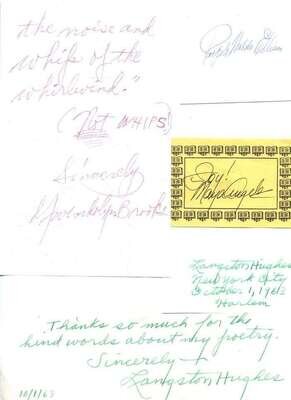 the noise and
whip of the
whirlwind."
(Not WHIPS)
Sincerely
Gwendolyn Brooks
Ralph Waldo Ellison
Joy!
Maya Angelou
Langston Hughes
New York City
October 1, 1963
Harlem
Thanks so much for the
kind words about my poetry.
Sincerely—
Langston Hughes
10/1/63